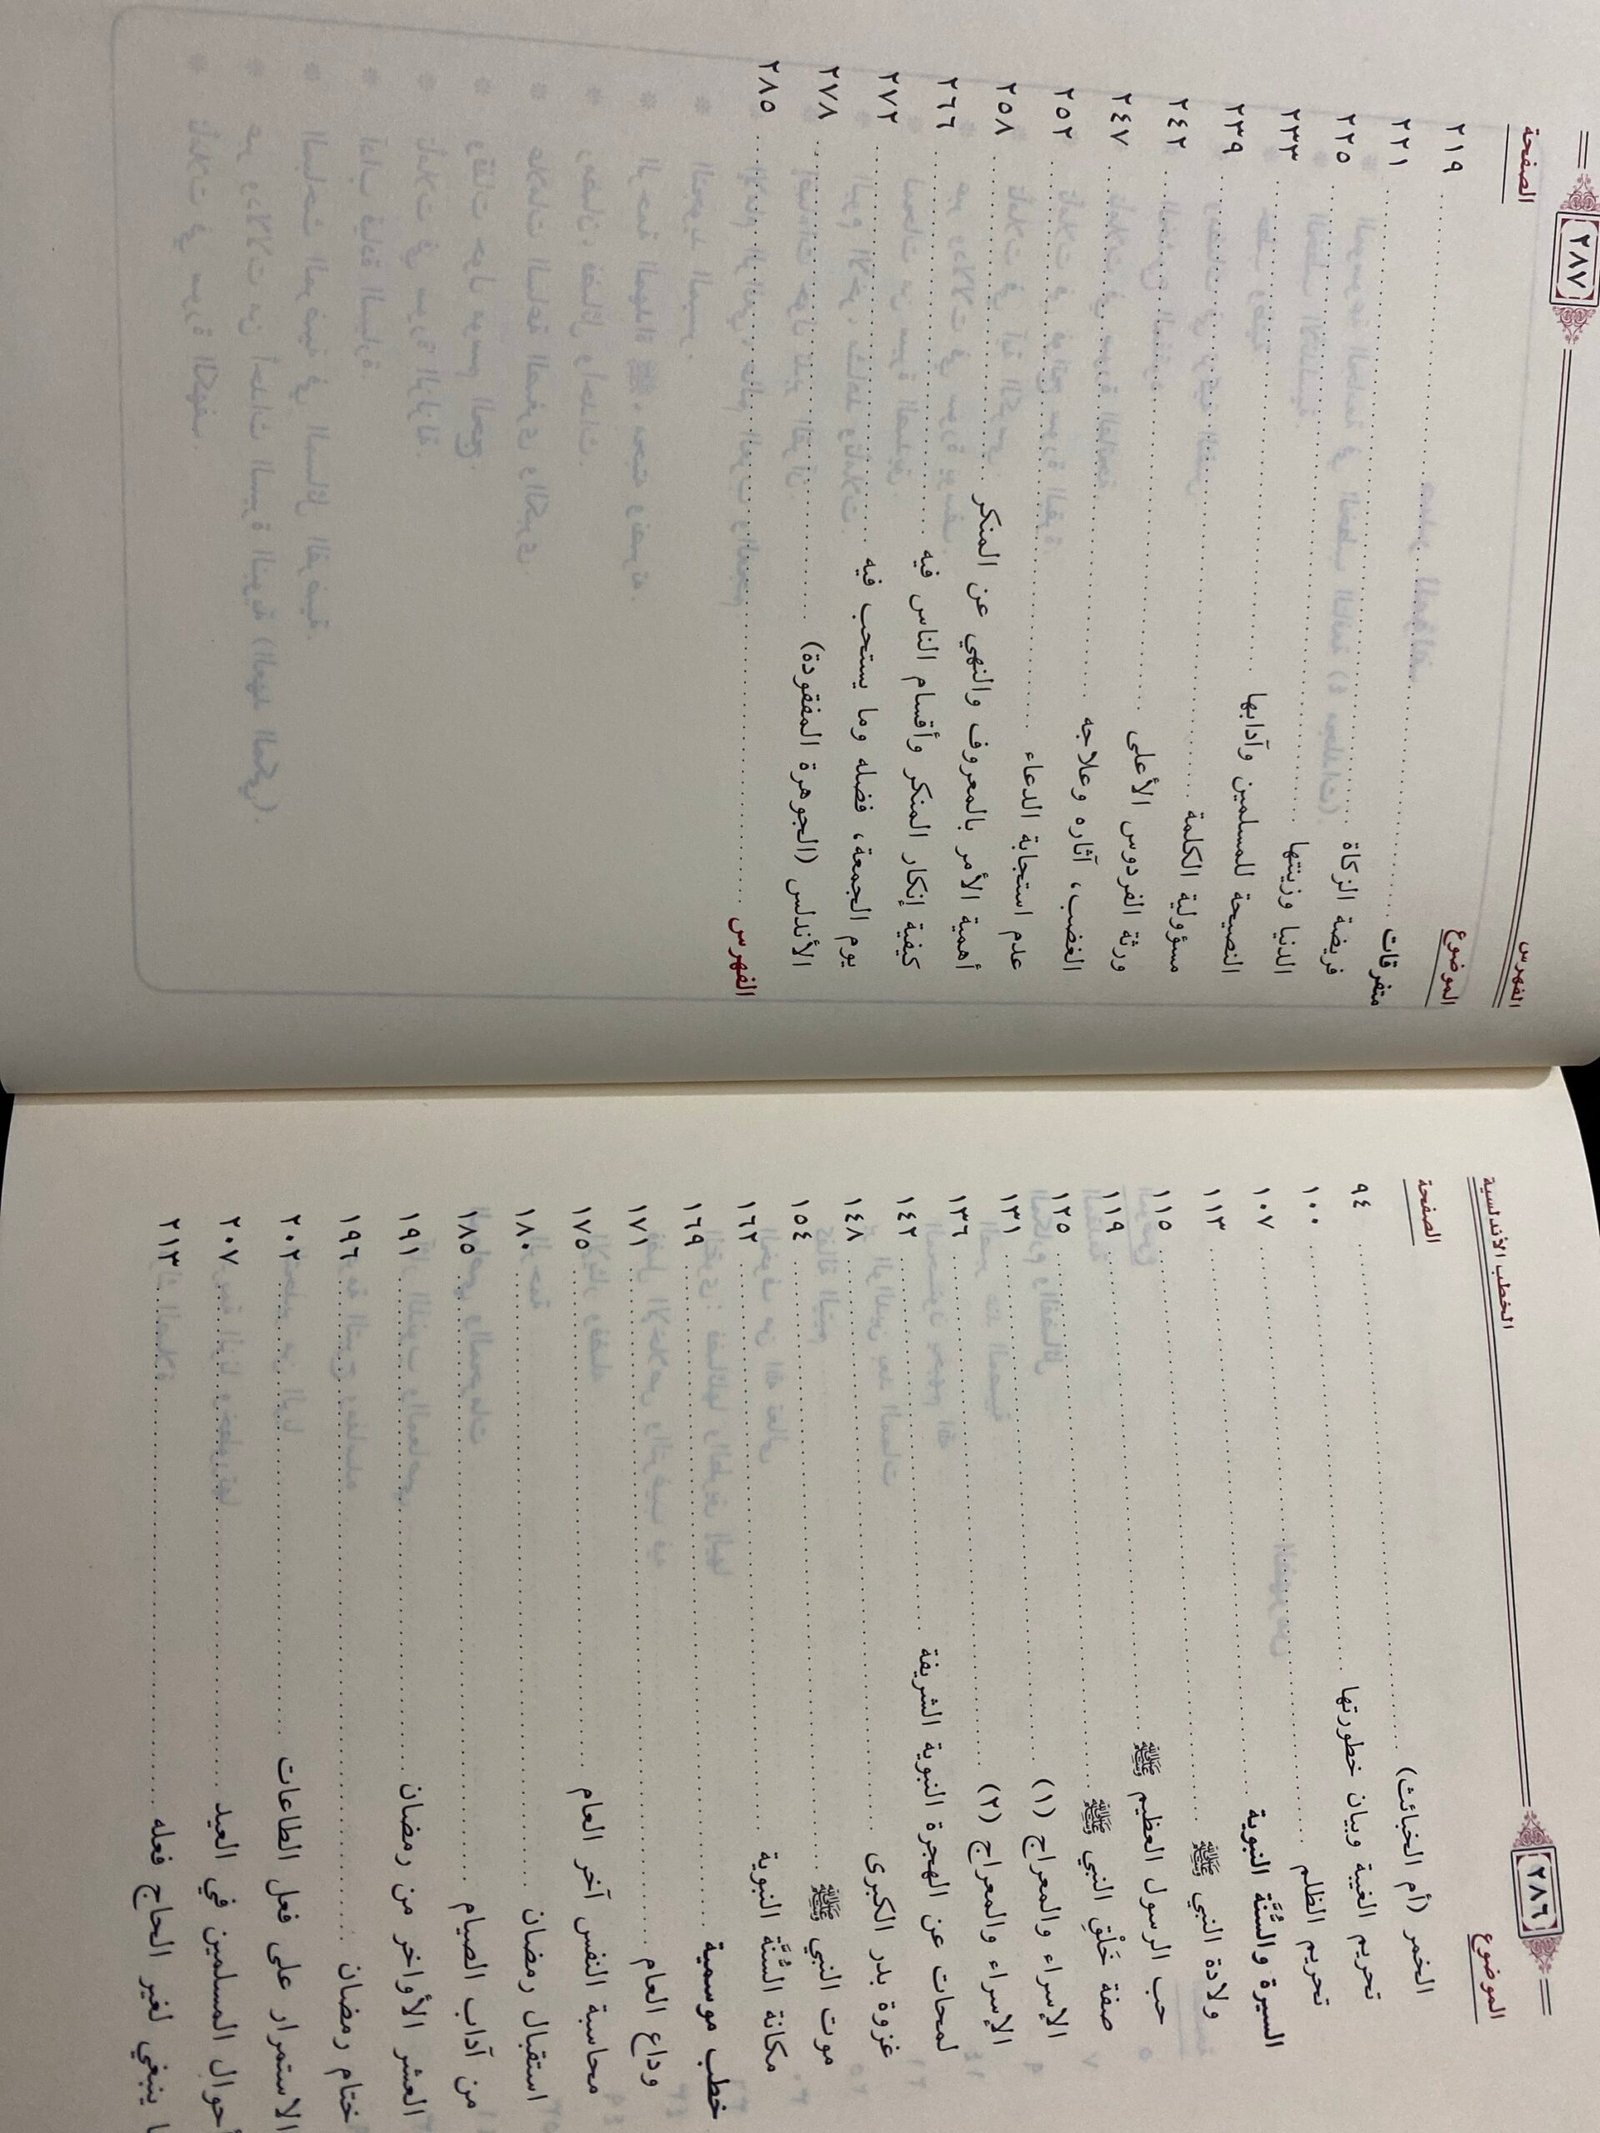 ٢٨٦ الخطب الأندلسية
الموضوع الصفحة
الخمر (أم الخبائث) ٩٤
تحريم الغيبة وبيان خطورتها ١٠٠
تحريم الظلم ١٠٧
السيرة والسُّنَّة النبوية ١١٣
ولادة النبي ﷺ ١١٥
حب الرسول العظيم ﷺ ١١٩
صفة خَلْقِ النبي ﷺ ١٢٥
الإسراء والمعراج (١) ١٣١
الإسراء والمعراج (٢) ١٣٦
لمحات عن الهجرة النبوية الشريفة ١٤٢
غزوة بدر الكبرى ١٤٨
موت النبي ﷺ ١٥٤
مكانة السُّنَّة النبوية ١٦٢
خطب موسمية ١٦٩
وداع العام ١٧١
محاسبة النفس آخر العام ١٧٥
استقبال رمضان ١٨٠
من آداب الصيام ١٨٥
العشر الأواخر من رمضان ١٩١
ختام رمضان ١٩٦
الاستمرار على فعل الطاعات ٢٠٢
أحوال المسلمين في العيد ٢٠٧
ما ينبغي لغير الحاج فعله ٢١٣
الفهرس ٢٨٧
الموضوع الصفحة
متفرقات ٢١٩
فريضة الزكاة ٢٢١
الدنيا وزينتها ٢٢٥
النصيحة للمسلمين وآدابها ٢٣٣
مسؤولية الكلمة ٢٣٩
ورثة الفردوس الأعلى ٢٤٢
الغضب، آثاره وعلاجه ٢٤٧
عدم استجابة الدعاء ٢٥٢
أهمية الأمر بالمعروف والنهي عن المنكر ٢٥٨
كيفية إنكار المنكر وأقسام الناس فيه ٢٦٦
يوم الجمعة، فضله وما يستحب فيه ٢٧٢
الأندلس (الجوهرة المفقودة) ٢٧٨
الفهرس ٢٨٥